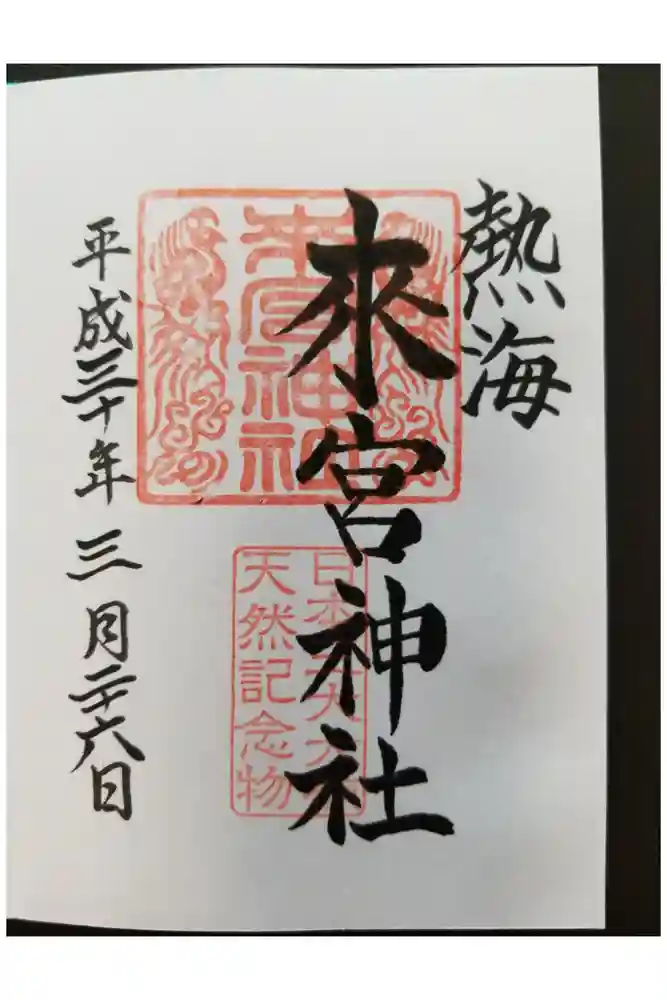 熱海
來宮神社
來宮神社
天然記念物
平成三十年三月二十六日